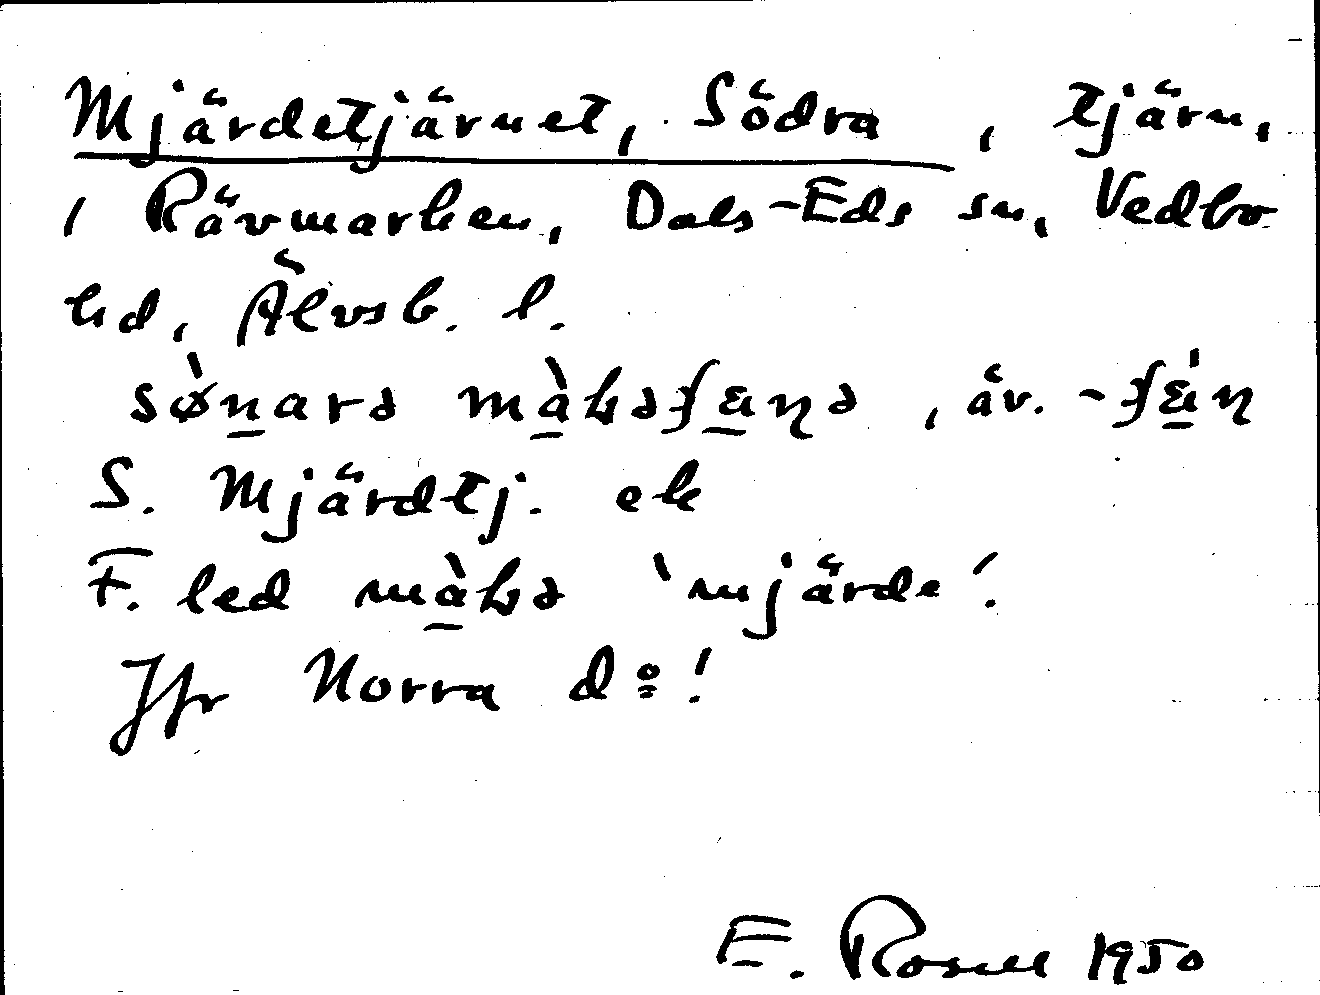 Mjärdetjärnet, Södra, tjärn,
i Rävmarken, Dals-Eds sn, Vedbo
hd, Älvsb. l.
S. Mjärdtj. ek
F. led 'mjärde'.
Jfr Norra d:o!
E. Rosell 1950